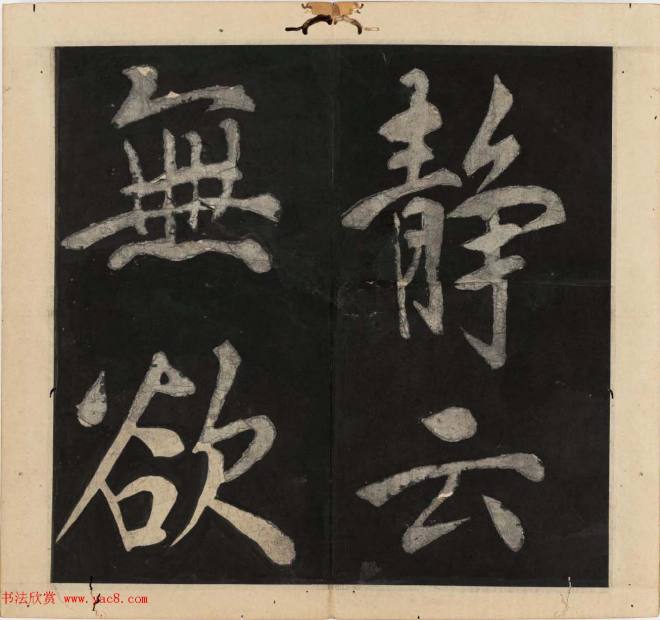 静云
無欲
书法欣赏 www.yac8.com